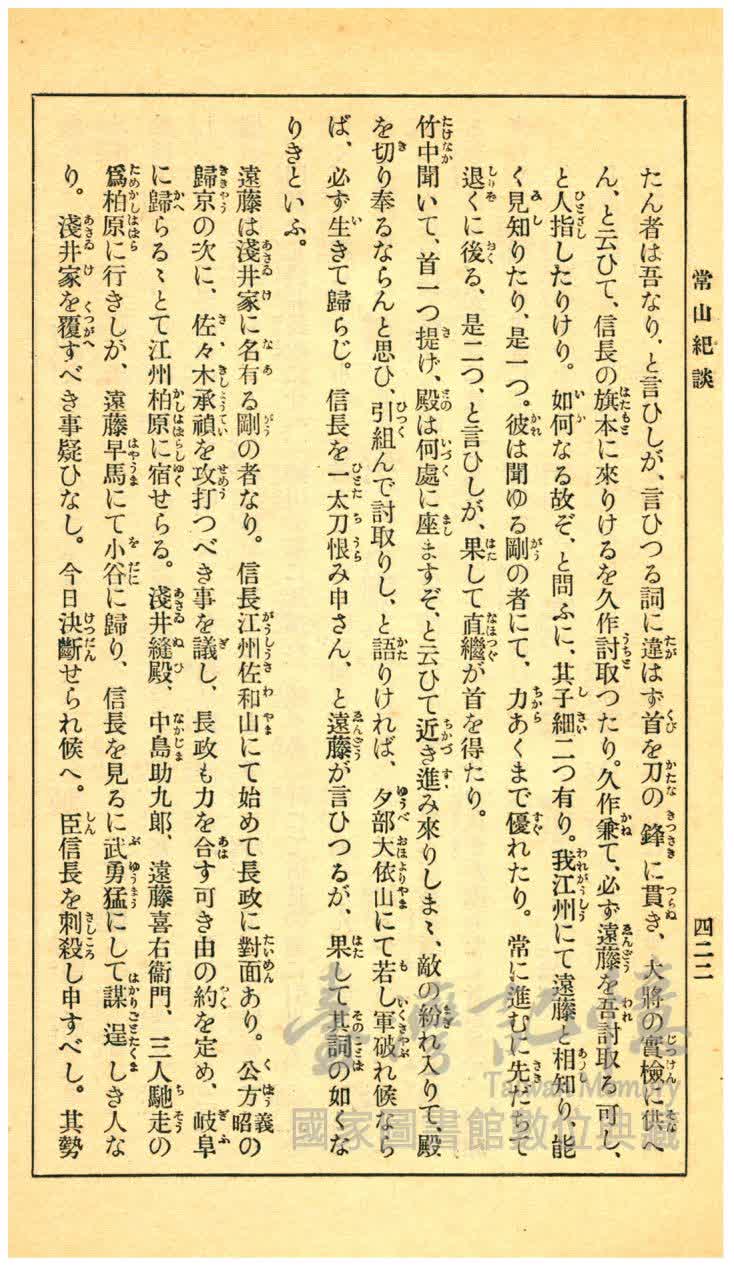 常山紀談
四二二
たん者は吾なり、と言ひしが、言ひつる詞に違はず首を刀の鋒に貫き、大將の實檢に供へ
ん、と云ひて、信長の旗本に來りけるを久作討取つたり。久作兼て、必ず遠藤を吾討取る可し、
と人指したりけり。如何なる故ぞ、と問ふに、其子細二つ有り。我江州にて遠藤と相知り、能
く見知りたり、是一つ。彼は聞ゆる剛の者にて、力あくまで優れたり。常に進むに先だちて
退くに後る、是二つ、と言ひしが、果して直繼が首を得たり。
竹中聞いて、首一つ提げ、殿は何處に座ますぞ、と云ひて近き進み來りしまゝ、敵の紛れ入りて、殿
を切り奉るならんと思ひ、引組んで討取りし、と語りければ、夕部大依山にて若し軍破れ候なら
ば、必ず生きて歸らじ。信長を一太刀恨み申さん、と遠藤が言ひつるが、果して其詞の如くな
りきといふ。
遠藤は淺井家に名有る剛の者なり。信長江州佐和山にて始めて長政に對面あり。公方義昭の
歸京の次に、佐々木承禎を攻打つべき事を議し、長政も力を合す可き由の約を定め、岐阜
に歸らるゝとて江州柏原に宿せらる。淺井縫殿、中島助九郎、遠藤喜右衞門、三人馳走の
爲柏原に行きしが、遠藤早馬にて小谷に歸り、信長を見るに武勇猛にして謀逞しき人な
り。淺井家を覆すべき事疑ひなし。今日決斷せられ候へ。臣信長を刺殺し申すべし。其勢
臺灣記憶
Taiwan Memory
國家圖書館數位典藏